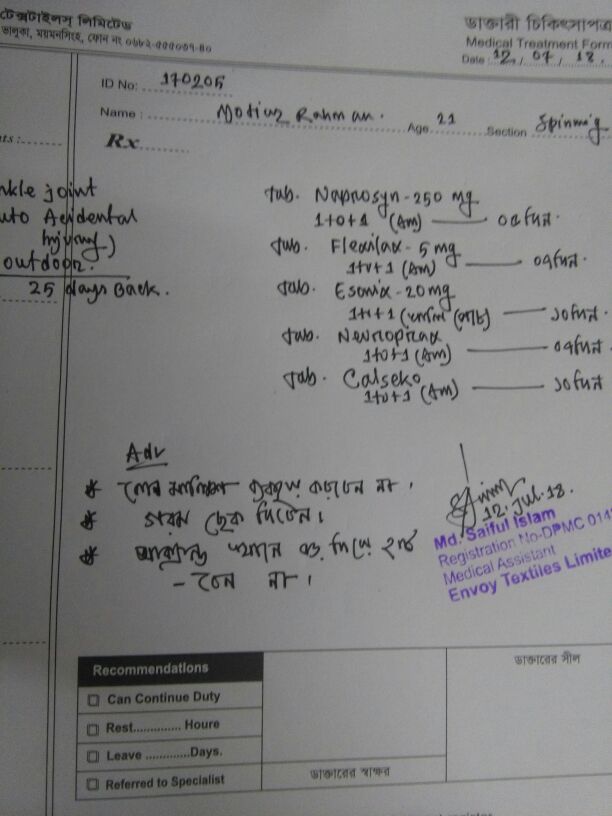 টেক্সটাইলস্ লিমিটেড
ভালুকা, ময়মনসিংহ, ফোন নং ০৬৮২-৫৫৫০৩৭-৪০
ডাক্তারী চিকিৎসাপত্র
Medical Treatment Form
Date : 12 / 07 / 18.
ID No: 170205
Name : Motiur Rahman. Age 21 Section Spinning
Rx
nkle joint
uto Acidental
Injurey)
outdoor.
25 days Back.
Tab. Naprosyn - 250 mg
1+0+1 (Am) — ০৫দিন.
Tab. Flexilax - 5 mg
1+1+1 (Am) — ০৭দিন.
Tab. Esonix - 20mg
1+1+1 — ১০দিন.
Tab. Neuropirax
1+0+1 (Am) — ০৭দিন
Tab. Calseko
1+0+1 (Am) — ১০দিন
Adv
* না।
* গরম ছেক দিবেন।
* দিয়ে হাট
- বেন না।
12. Jul. 18.
Md. Saiful Islam
Registration No-DPMC 014
Medical Assistant
Envoy Textiles Limite
Recommendations
Can Continue Duty
Rest.............. Houre
Leave ...........Days.
Referred to Specialist
ডাক্তারের স্বাক্ষর
ডাক্তারের সীল